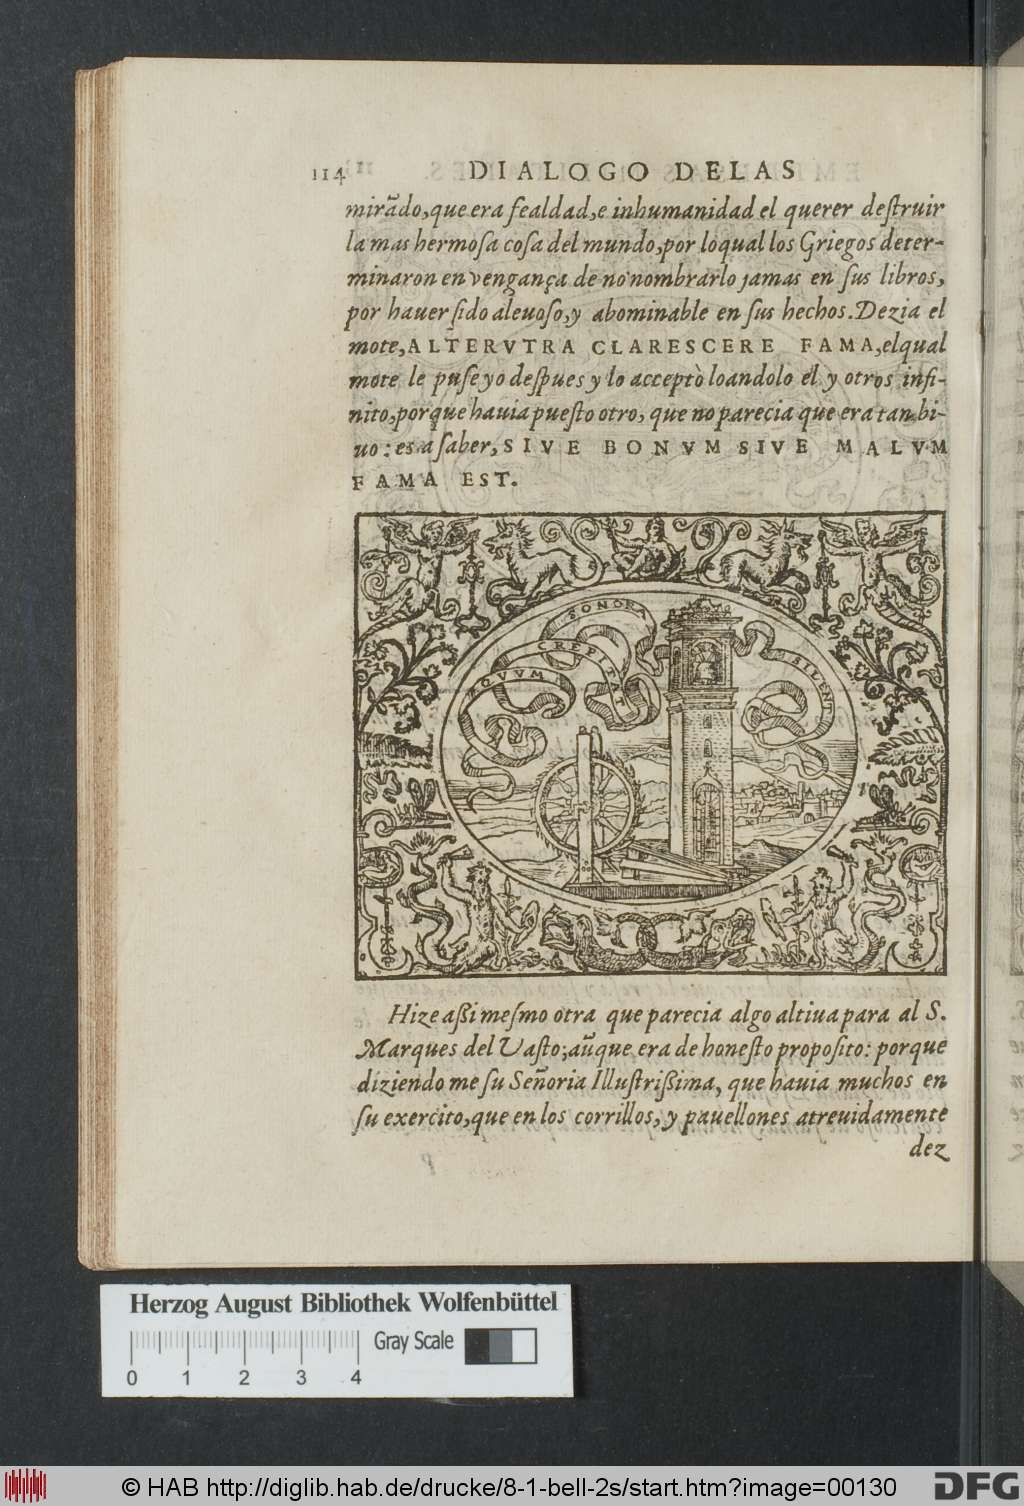 114 DIALOGO DELAS
mirãdo, que era fealdad, e inhumanidad el querer destruir
la mas hermosa cosa del mundo, por loqual los Griegos deter-
minaron en vengança de no nombrarlo jamas en sus libros,
por hauer sido aleuoso, y abominable en sus hechos. Dezia el
mote, ALTERVTRA CLARESCERE FAMA, elqual
mote le puse yo despues y lo acceptò loandolo el y otros infi-
nito, porque hauia puesto otro, que no parecia que era tan bi-
uo: es a saber, SIVE BONVM SIVE MALVM
FAMA EST.
SONORA
CREPITAT
SILENT
Hize aßi mesmo otra que parecia algo altiua para al S.
Marques del Vasto; aũque era de honesto proposito: porque
diziendo me su Señoria Illustrißima, que hauia muchos en
su exercito, que en los corrillos, y pauellones atreuidamente
dez
Herzog August Bibliothek Wolfenbüttel
Gray Scale
0 1 2 3 4
© HAB http://diglib.hab.de/drucke/8-1-bell-2s/start.htm?image=00130
DFG